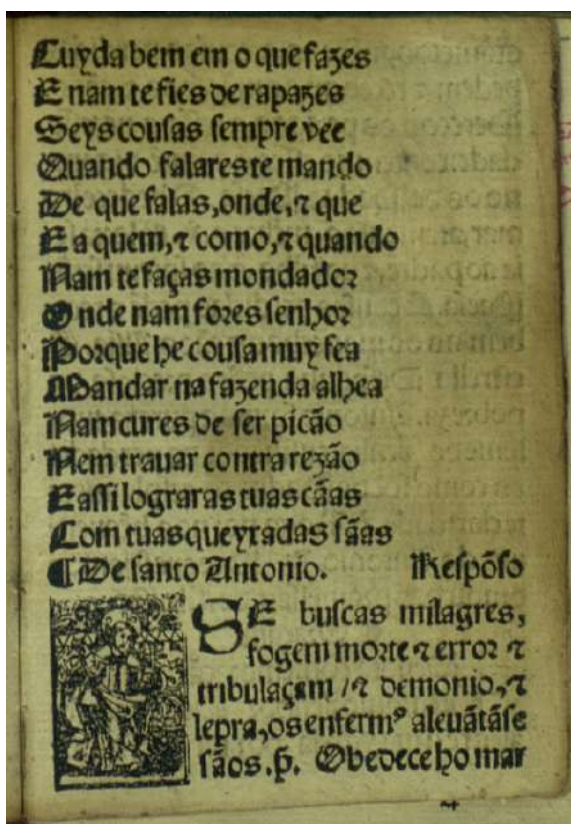 Cuyda bem em o que fazes
E nam te fies de rapazes
Seys cousas sempre vee
Quando falares te mando
De que falas, onde, ⁊ que
E a quem, ⁊ como, ⁊ quando
Nam te faças mondador
Onde nam fores senhor
Porque he cousa muy fea
Mandar na fazenda alhea
Nam cures de ser picão
Nem travar contra rezão
E assi lograras tuas cãas
Com tuas queyradas sãas
¶ De santo Antonio. Respõso
SE buscas milagres,
fogem morte ⁊ error ⁊
tribulaçam /⁊ demonio, ⁊
lepra, os enfermꝰ aleuãtãse
sãos. þ. Obedece ho mar